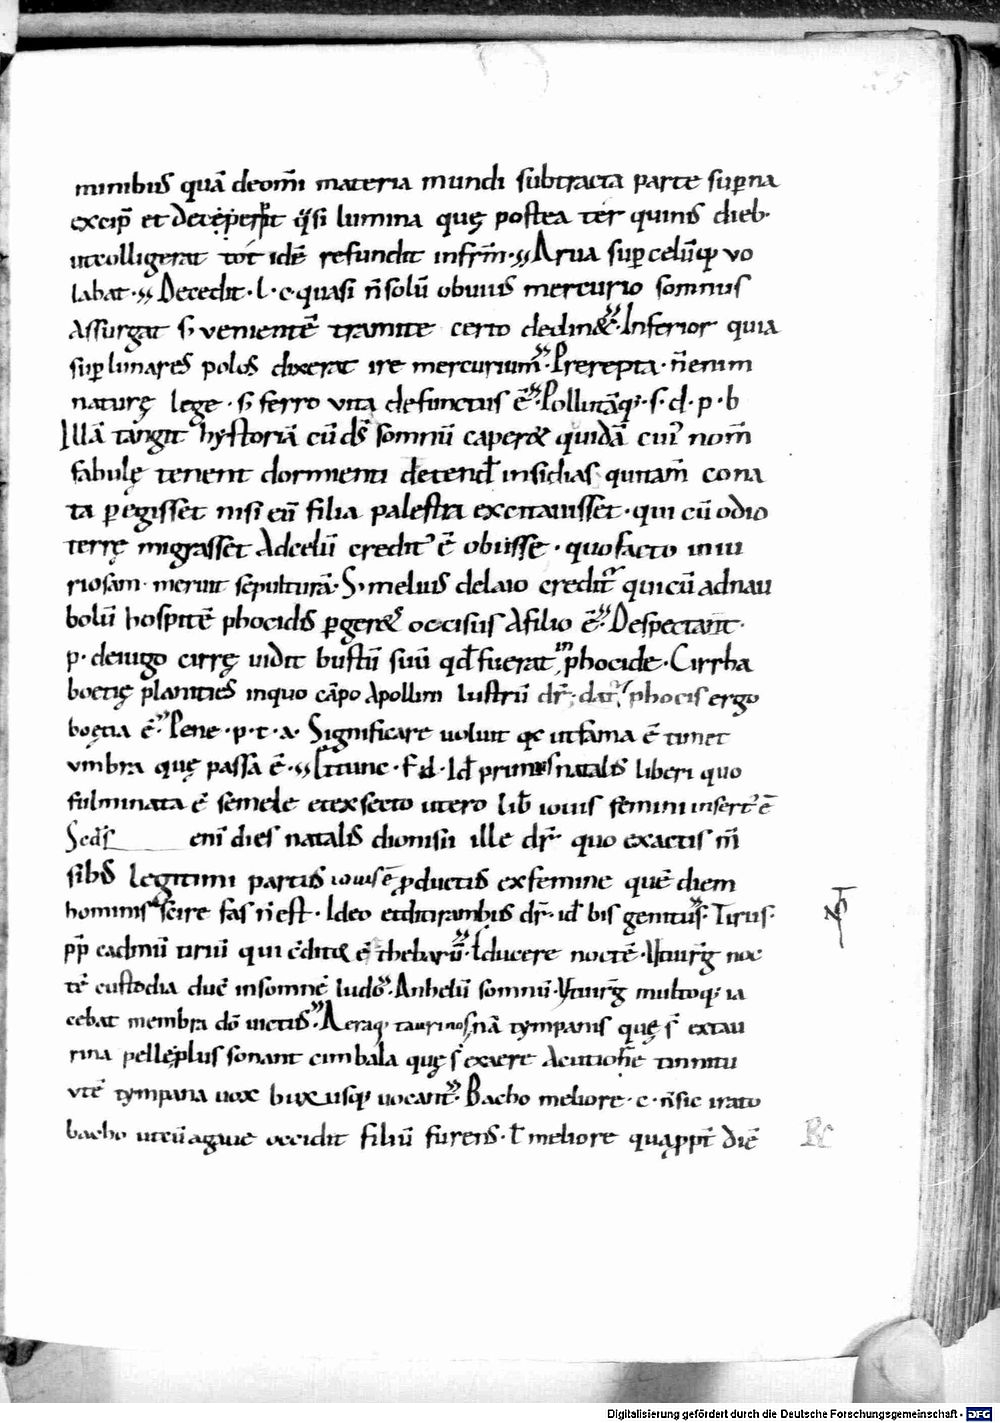 minibus quā deom̄i materia mundi subtracta parte suꝑna
excip̄ et q̄si lumina quę postea ter quinis dieb·
utcolligerat tot idē refundit infrm̄·Arua suꝑ celūqꝫ vo
labat·Decedit·l·c·quasi n̄ solū obuius mercurio somnus
Assurgat s; veniente tramite certo declin&·Inferior quia
suꝑ lunares polos dixerat ire mercurium·Prerepta·n̄enim
naturę lege·s; ferro vita defunctus ē·Pollutāqꝫ·s·d·p·b
Illā tangit hystoriā cū dš somnū caper& quidā cui nom̄
fabulę tenent dormienti detend̄ insidias qutam̄ cona
ta ꝑegisset nisi eū filia palestra excitauisset·qui cū odio
terrę migrasset Adcelū credit᷒ ē obiisse·quofacto iniu
riosam·meruit sepulturā·S; melius delaio credit᷒ qui cū adnau
bolū hospitē phocidis ꝑger& occisus Afilio ē·Despectant·
p·deiugo cirrę vidit bustū suū qd̄ fuerat in phocide·Cirrha
boetię planities inquo cāpo Apollini lustrū dr̄· phocis ergo
boętia ē·Pene·p·t·a·Significare uoluit qc̄ ut fama ē timet
vmbra quę passa ē·Et tunc·f·d·Id̄ primus natalis liberi quo
fulminata ē semele et exsecto utero lib̄ iouis femini insert᷒ ē
Scds̄ eni dies natalis dionisii ille dr̄ quo exactis m̄
sibus legitimi partus iouis ē ꝓductus exfemine quē diem
hominis scire fas n̄ est·Ideo et ditirambus dr̄·id̄ bis genitus·Tirus·
ꝓp̄ cadmū tiriū qui c̄ditor ē thebarū·Iducere noctē·Ytuirg̅ noc
tē custodia ducē insomnē ludo·Anhelū somnū·Ytuirg̅ multoqꝫ ia
cebat membra dō uictus·Aeraqꝫ taurinos, nā tympanis quę s̄ extau
rina pelle plus sonant cimbala quę s̄ exaere Acutione tinnitu
vtē tympana uox bux usqꝫ uocant·Bacho meliore·c·n̄sic irato
bacho utcū agaue occidit filiū furens·t̄ meliore quappt̄ diē
Digitalisierung gefördert durch die Deutsche Forschungsgemeinschaft - DFG